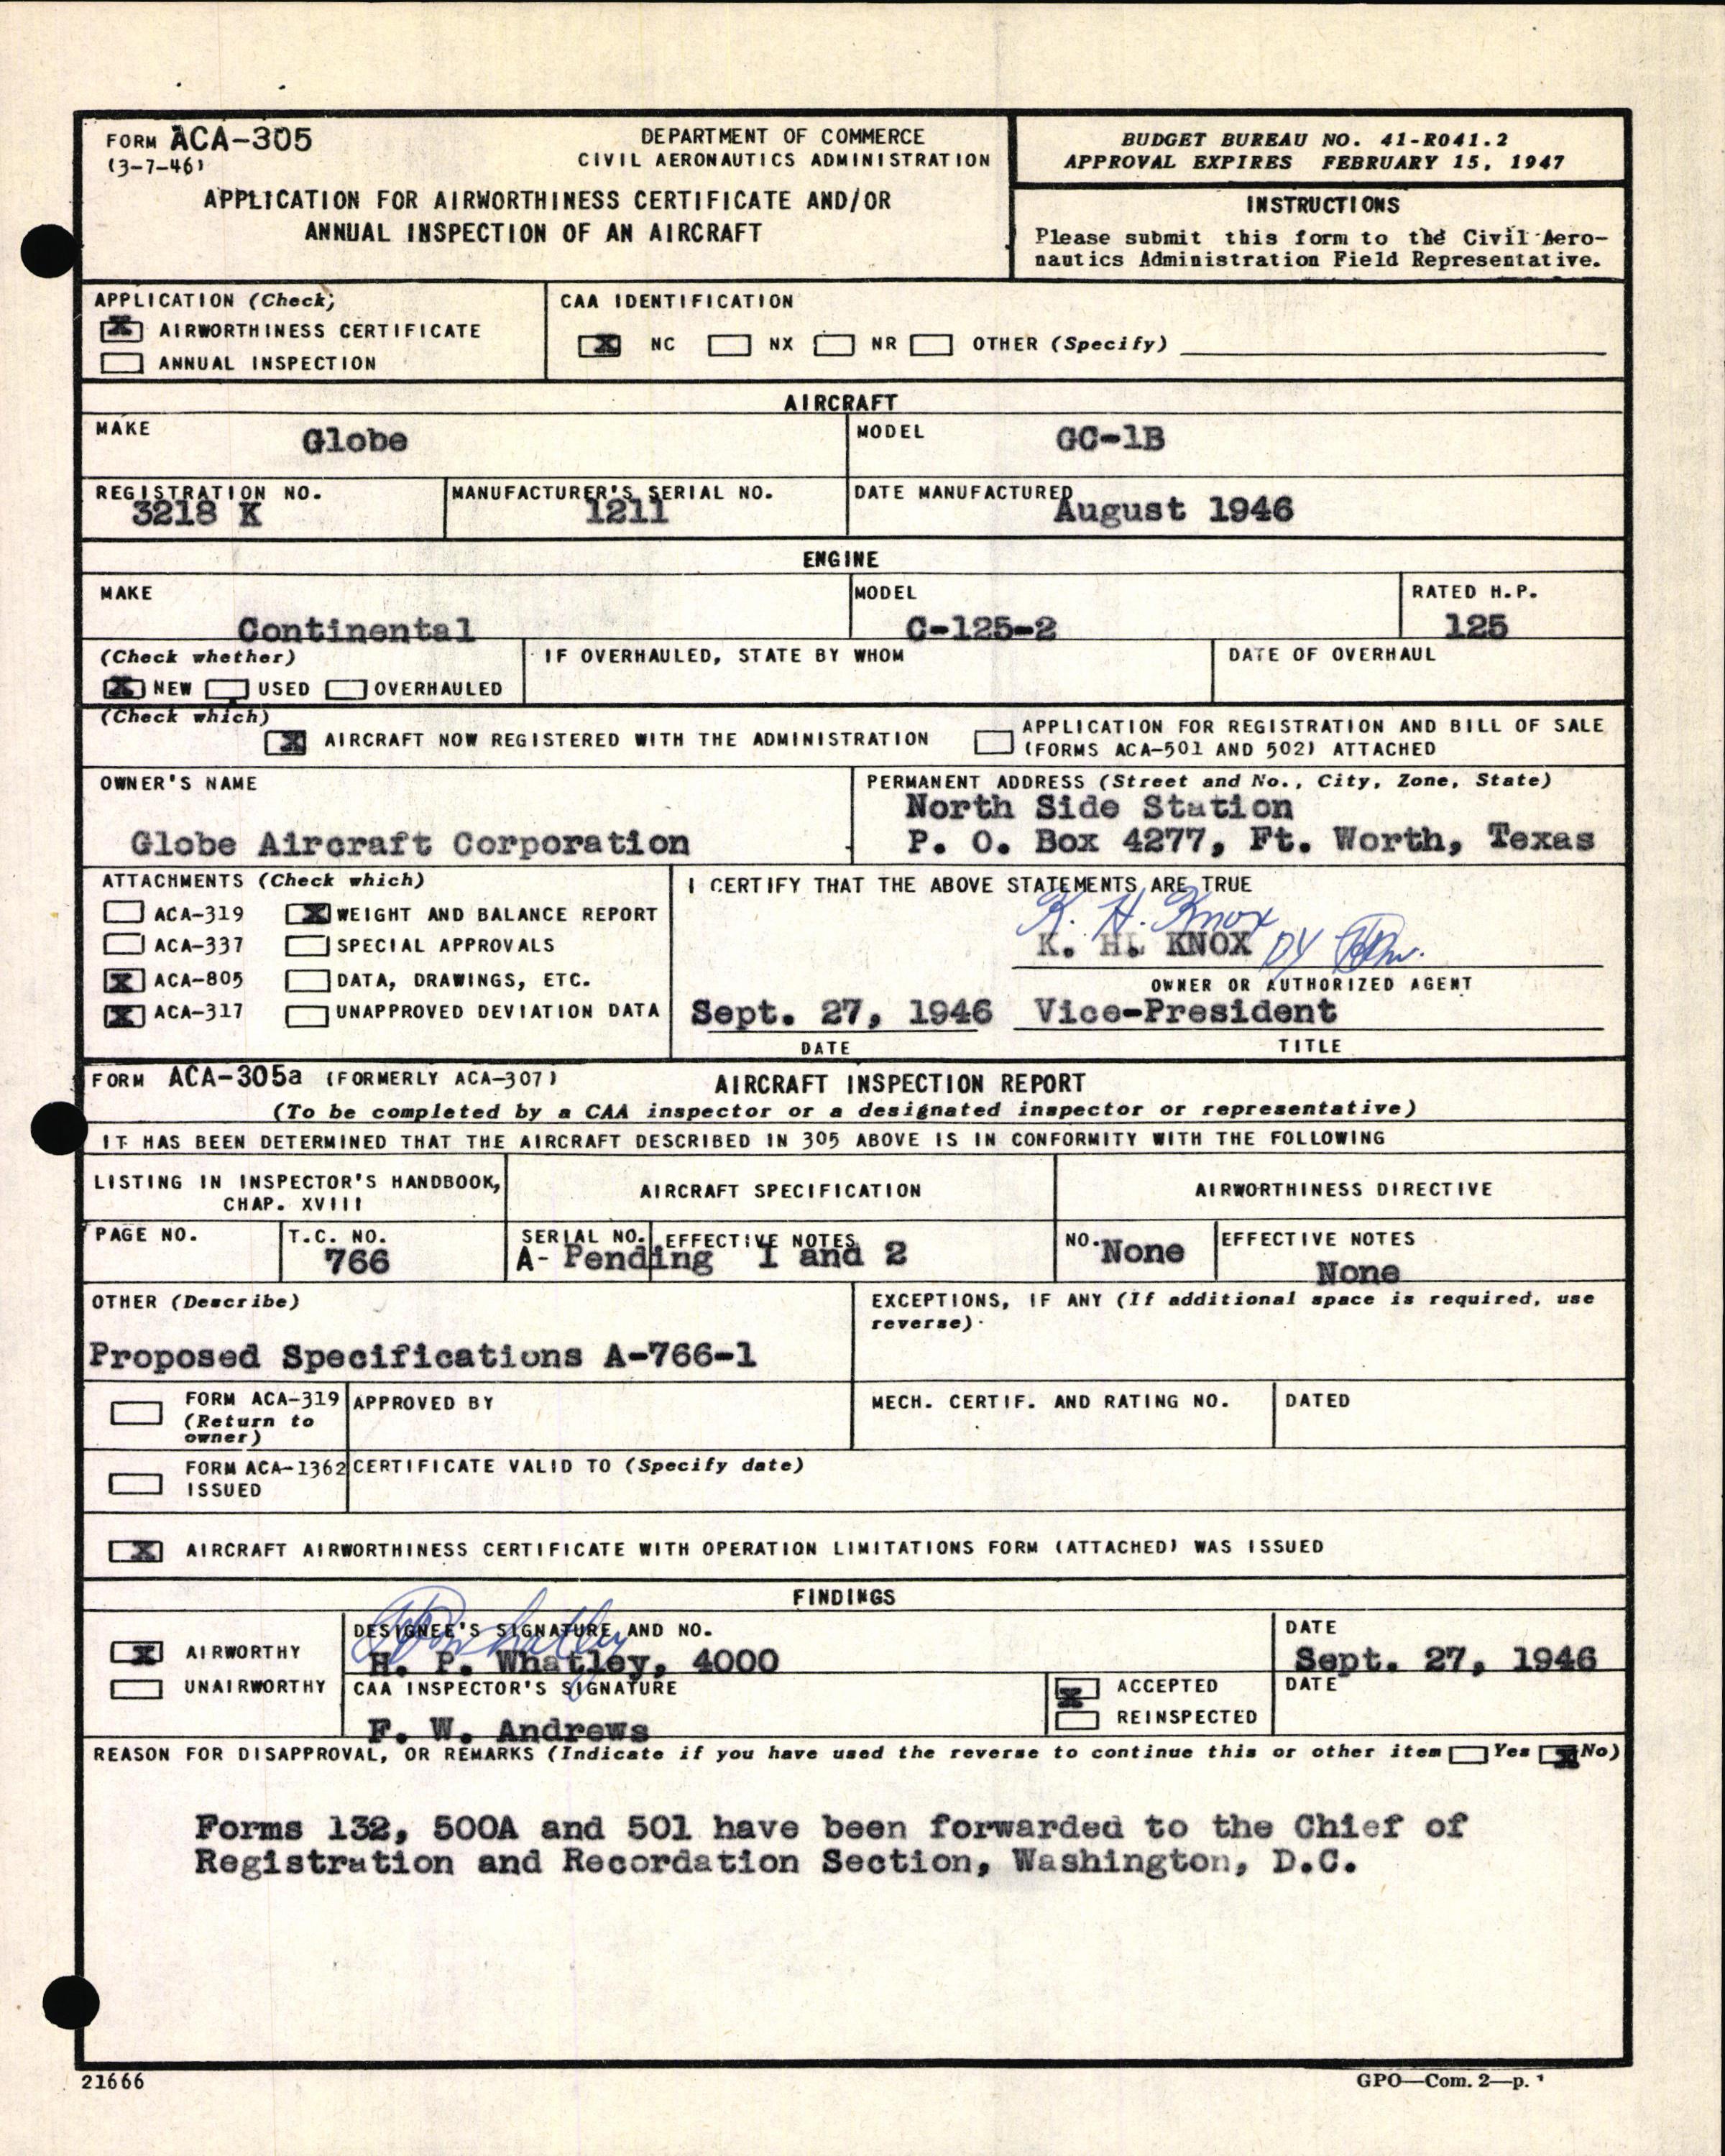 FORM ACA-305
(3-7-46)
DEPARTMENT OF COMMERCE
CIVIL AERONAUTICS ADMINISTRATION
APPLICATION FOR AIRWORTHINESS CERTIFICATE AND/OR
ANNUAL INSPECTION OF AN AIRCRAFT
BUDGET BUREAU NO. 41-R041.2
APPROVAL EXPIRES FEBRUARY 15, 1947
INSTRUCTIONS
Please submit this form to the Civil Aero-
nautics Administration Field Representative.
APPLICATION (Check)
X AIRWORTHINESS CERTIFICATE
ANNUAL INSPECTION
CAA IDENTIFICATION
X NC NX NR OTHER (Specify)
AIRCRAFT
MAKE
Globe
MODEL
GC-1B
REGISTRATION NO.
3218 K
MANUFACTURER'S SERIAL NO.
1211
DATE MANUFACTURED
August 1946
ENGINE
MAKE
Continental
MODEL
C-125-2
RATED H.P.
125
(Check whether)
X NEW USED OVERHAULED
IF OVERHAULED, STATE BY WHOM
DATE OF OVERHAUL
(Check which)
X AIRCRAFT NOW REGISTERED WITH THE ADMINISTRATION
APPLICATION FOR REGISTRATION AND BILL OF SALE
(FORMS ACA-501 AND 502) ATTACHED
OWNER'S NAME
Globe Aircraft Corporation
PERMANENT ADDRESS (Street and No., City, Zone, State)
North Side Station
P. O. Box 4277, Ft. Worth, Texas
ATTACHMENTS (Check which)
ACA-319 X WEIGHT AND BALANCE REPORT
ACA-337 SPECIAL APPROVALS
X ACA-805 DATA, DRAWINGS, ETC.
X ACA-317 UNAPPROVED DEVIATION DATA
I CERTIFY THAT THE ABOVE STATEMENTS ARE TRUE
K. H. Knox
K. H. KNOX by
OWNER OR AUTHORIZED AGENT
Sept. 27, 1946 Vice-President
DATE TITLE
FORM ACA-305a (FORMERLY ACA-307) AIRCRAFT INSPECTION REPORT
(To be completed by a CAA inspector or a designated inspector or representative)
IT HAS BEEN DETERMINED THAT THE AIRCRAFT DESCRIBED IN 305 ABOVE IS IN CONFORMITY WITH THE FOLLOWING
LISTING IN INSPECTOR'S HANDBOOK,
CHAP. XVIII
AIRCRAFT SPECIFICATION
AIRWORTHINESS DIRECTIVE
PAGE NO.
T.C. NO.
766
SERIAL NO. EFFECTIVE NOTES
A- Pending 1 and 2
NO. None
EFFECTIVE NOTES
None
OTHER (Describe)
Proposed Specifications A-766-1
EXCEPTIONS, IF ANY (If additional space is required, use
reverse)
FORM ACA-319
(Return to
owner)
APPROVED BY
MECH. CERTIF. AND RATING NO.
DATED
FORM ACA-1362
ISSUED
CERTIFICATE VALID TO (Specify date)
X AIRCRAFT AIRWORTHINESS CERTIFICATE WITH OPERATION LIMITATIONS FORM (ATTACHED) WAS ISSUED
FINDINGS
X AIRWORTHY
UNAIRWORTHY
DESIGNEE'S SIGNATURE AND NO.
H. P. Whatley, 4000
DATE
Sept. 27, 1946
CAA INSPECTOR'S SIGNATURE
F. W. Andrews
X ACCEPTED
REINSPECTED
DATE
REASON FOR DISAPPROVAL, OR REMARKS (Indicate if you have used the reverse to continue this or other item Yes X No)
Forms 132, 500A and 501 have been forwarded to the Chief of
Registration and Recordation Section, Washington, D.C.
21666
GPO—Com. 2—p.